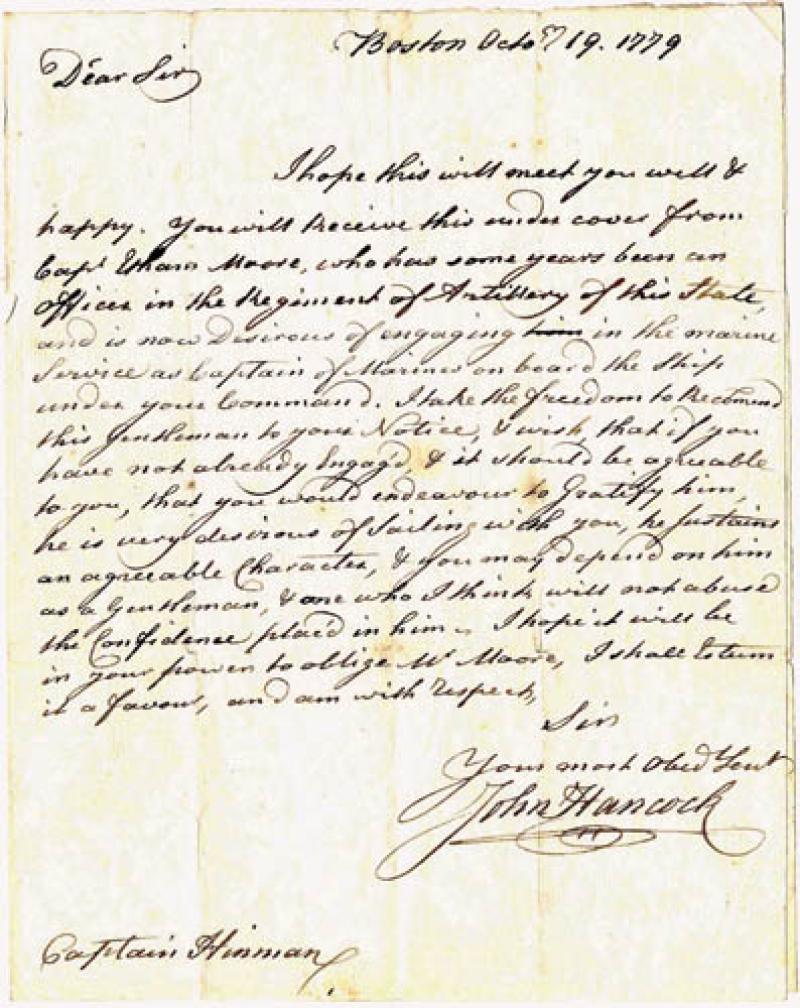 Boston Octoʳ 19. 1779
Dear Sir
I hope this will meet you well &
happy. You will Receive this under cover from
Capᵗ Moore, who has some years been an
officer in the Regiment of Artillery of this State,
and is now Desirous of engaging ~~him~~ in the marine
Service as Captain of Marines on board the Ship
under your Command. I take the freedom to Recomend
this Gentleman to your Notice, & wish, that if you
have not already Engag'd, & it should be agreeable
to you, that you would endeavour to Gratify him,
he is very desirous of Sailing with you, he sustains
an agreeable Character, & you may depend on him
as a Gentleman, & one who I think will not abuse
the Confidence plac'd in him. I hope it will be
in your power to oblige Mʳ Moore, I shall Esteem
it a favour, and am with respect,
Sir
Your most Obedᵗ Servᵗ
John Hancock
Captain Hinman